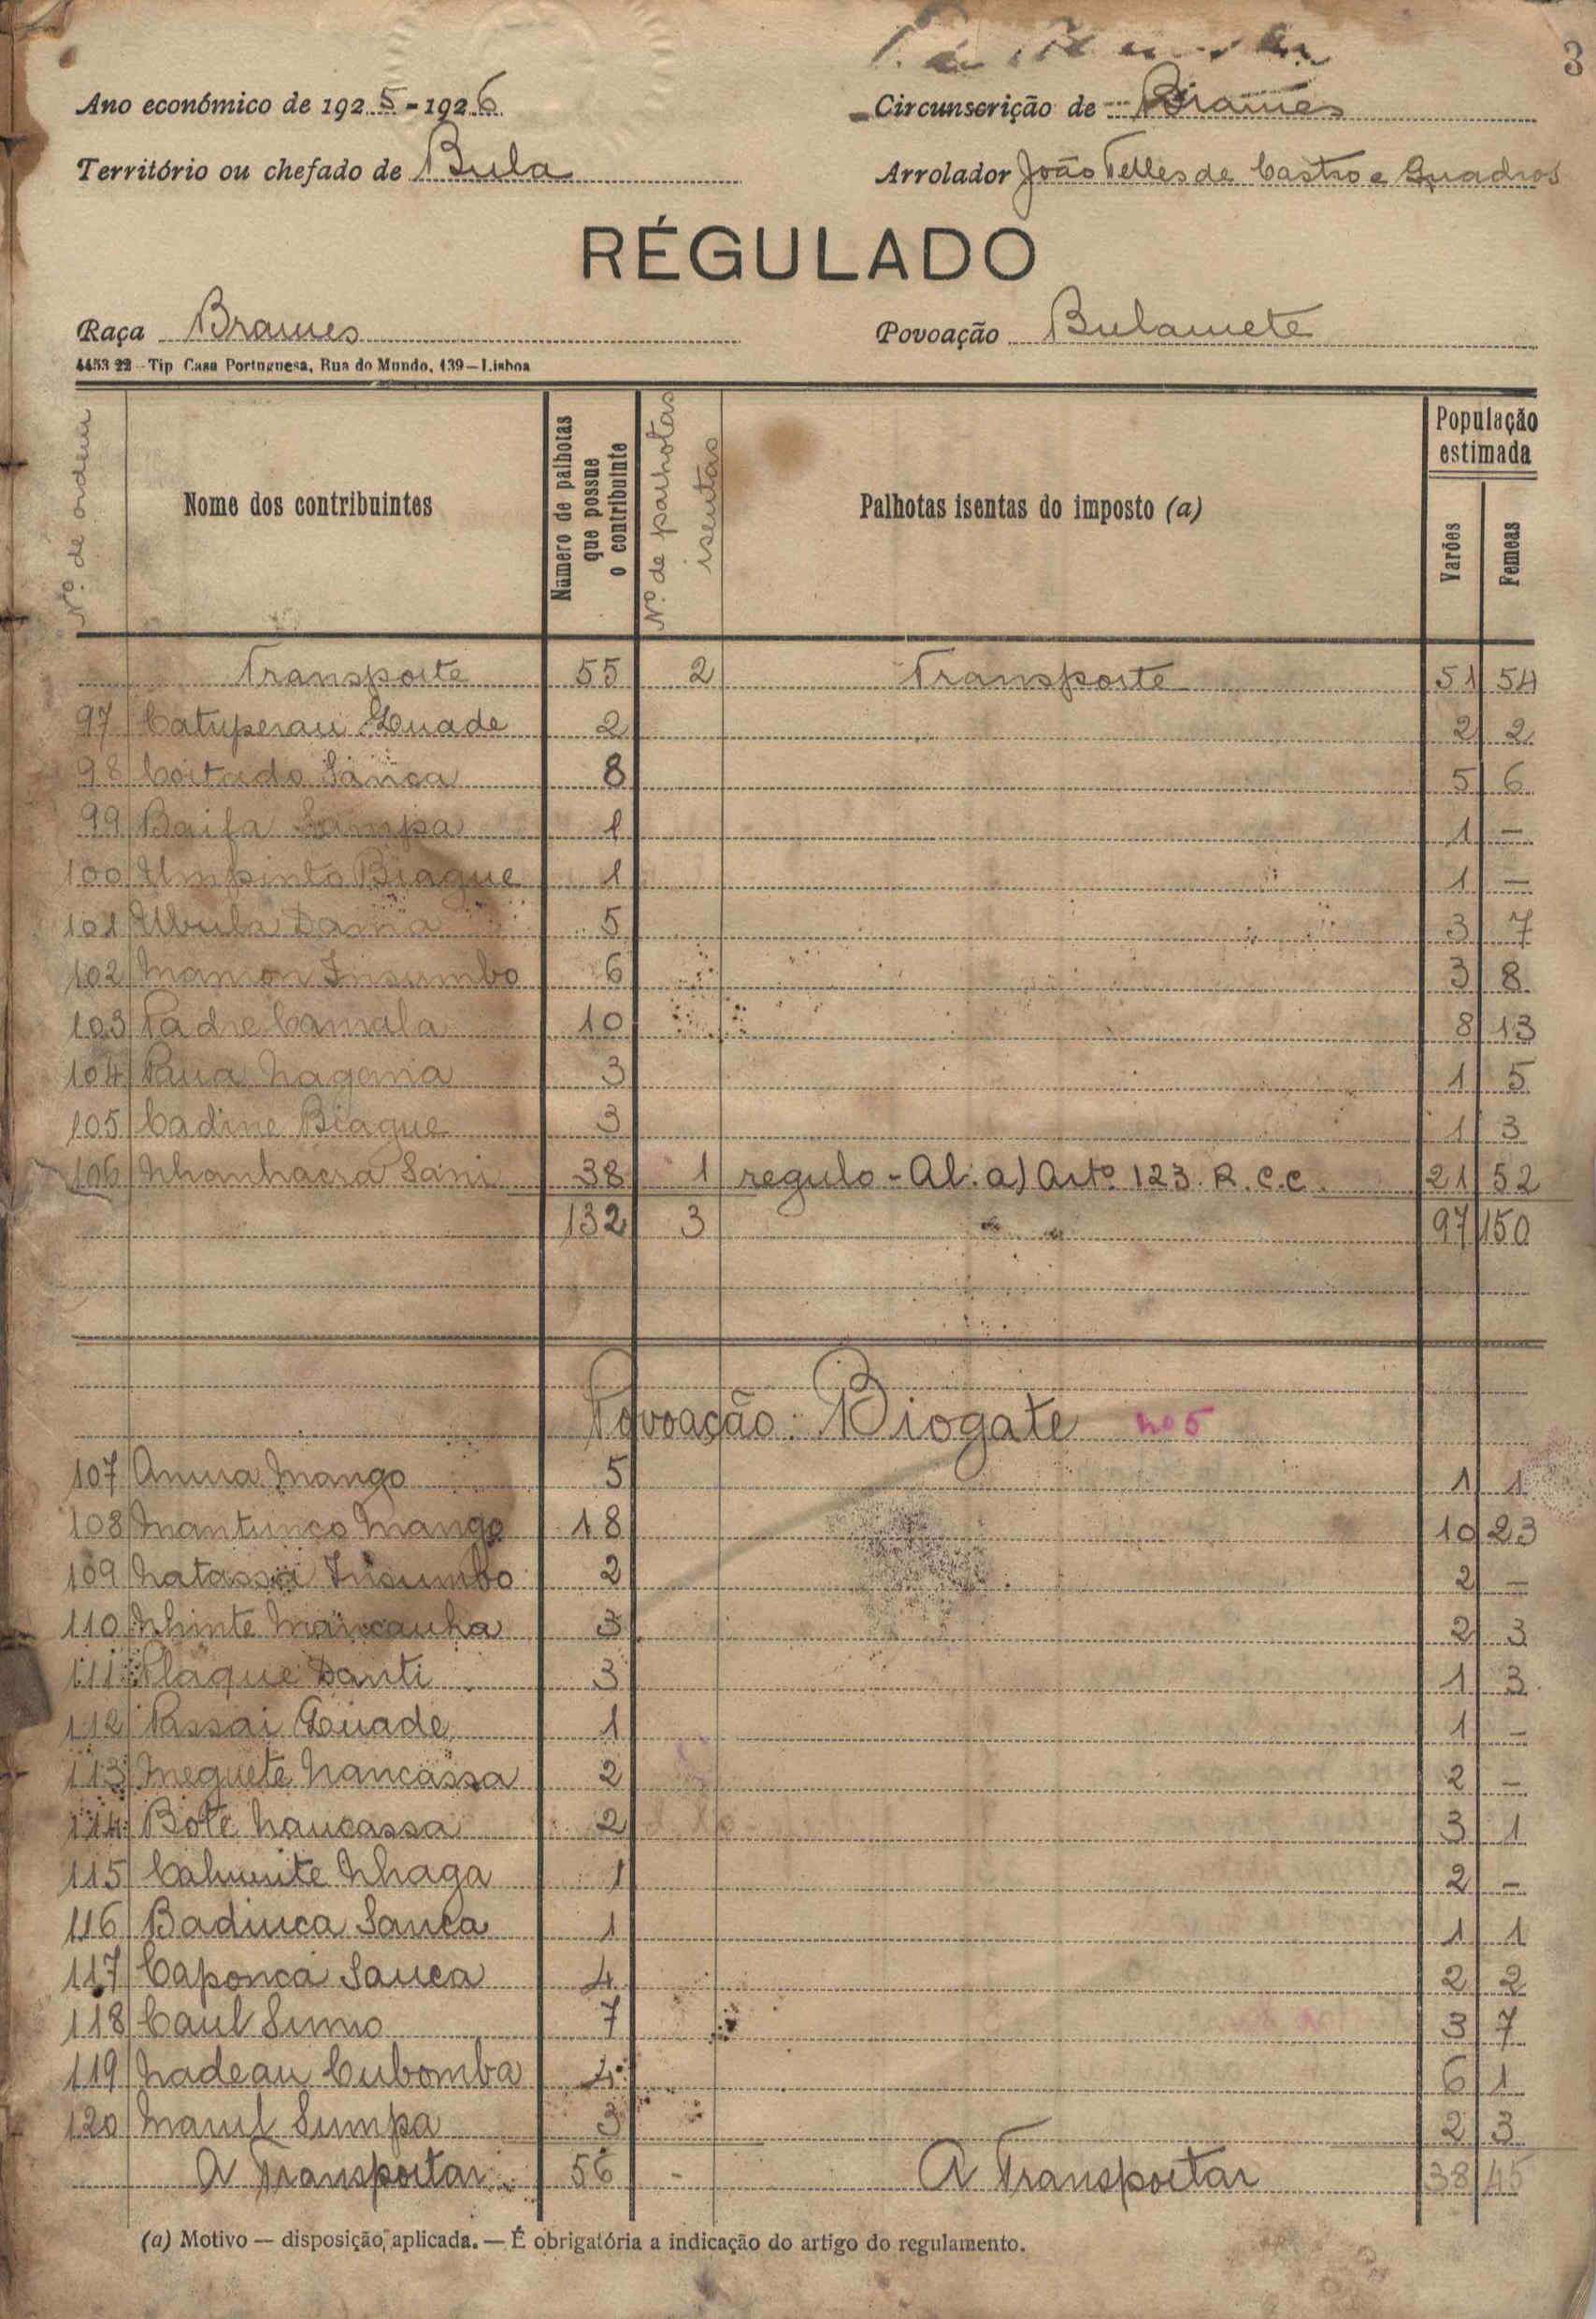 3
Ano económico de 1925-1926
Circunscrição de Brames
Território ou chefado de Bula
Arrolador João Telles de Castro e Quadros
RÉGULADO
Raça Brames
Povoação Bulamete
4453 22 - Tip Casa Portuguesa, Rua do Mundo, 139 — Lisboa
Nº de ordem
Nome dos contribuintes
Número de palhotas que possue o contribuinte
Nº de palhotas isentas
Palhotas isentas do imposto (a)
População estimada
Varões
Femeas
Transporte 55 2 Transporte 51 54
97 Catuperau Quade 2 2 2
98 Coitado Sanca 8 5 6
99 Baifa Sampa 1 1 —
100 Umpinto Biague 1 1 —
101 Ubula Dama 5 3 7
102 Mamon Insumbo 6 3 8
103 Padre Camala 10 8 13
104 Paua Nagana 3 1 5
105 Cadine Biague 3 1 3
106 Nhanhacra Sani 38 1 regulo - Al. a) Artº 123. R. C. C. 21 52
132 3 97 150
Povoação: Biogate nº 5
107 Anura Mango 5 1 1
108 Mantunco Mango 18 10 23
109 Natassa Insumbo 2 2 —
110 Nhinte Mancanha 3 2 3
111 Plaque Danti 3 1 3
112 Passai Quade 1 1 -
113 Meguete Nancassa 2 2 —
114 Bote Nancassa 2 3 1
115 Cahunite Nhaga 1 2 -
116 Badinca Sanca 1 1 1
117 Caponca Sanca 4 2 2
118 Caul Sumo 7 3 7
119 Nadeau Cubomba 4 6 1
120 Marul Sumpa 3 2 3
A Transportar 56 - A Transportar 38 45
(a) Motivo — disposição, aplicada. — É obrigatória a indicação do artigo do regulamento.